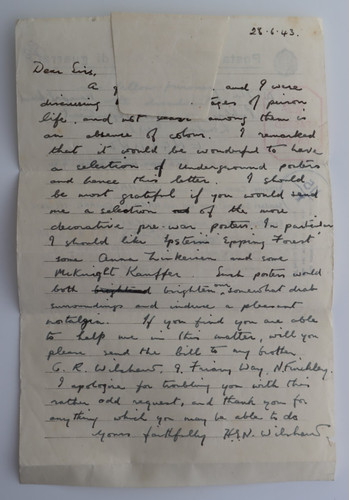 28.6.43.
Dear Sirs,
A and I were
discussing ages of prison
life, and not among them is
an absence of colour. I remarked
that it would be wonderful to have
a selection of Underground posters
and hence this letter. I should
be most grateful if you would send
me a selection of the more
decorative pre-war posters. In particular
I should like Epsteins Epping Forest
some Anna Zinkeisen and some
McKnight Kauffer. Such posters would
both brighten somewhat drab
surroundings and induce a pleasant
nostalgia. If you find you are able
to help me in this matter, will you
please send the bill to my brother
G. R. Wilshaw. 9. Friary Way. N. Finchley.
I apologise for troubling you with this
rather odd request, and thank you for
anything which you may be able to do
Yours faithfully